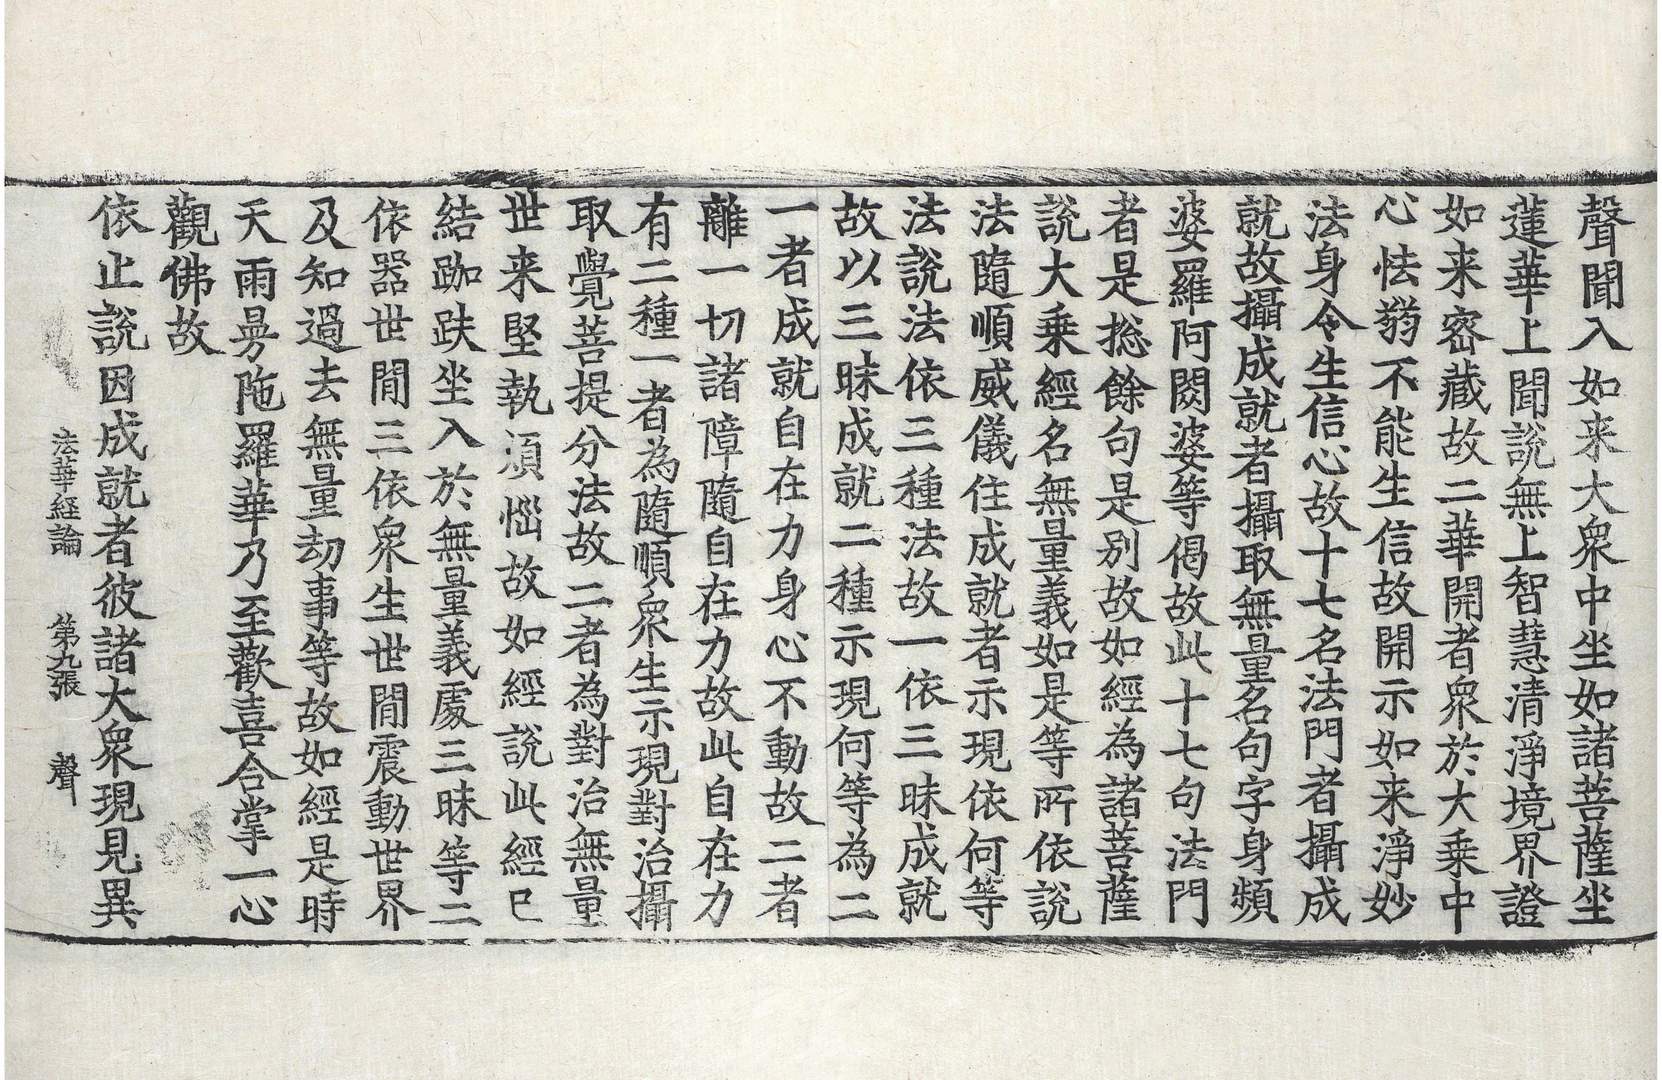 聲聞入如来大衆中坐如諸菩薩坐
蓮華上聞說無上智慧清淨境界證
如来密藏故二華開者衆於大乗中
心怯弱不能生信故開示如来淨妙
法身令生信心故十七名法門者攝成
就故攝成就者攝取無量名句字身頻
婆羅阿閦婆等偈故此十七句法門
者是揔餘句是別故如經為諸菩薩
說大乗經名無量義如是等所依說
法隨順威儀住成就者示現依何等
法說法依三種法故一依三昧成就
故以三昧成就二種示現何等為二
一者成就自在力身心不動故二者
離一切諸障隨自在力故此自在力
有二種一者為隨順衆生示現對治攝
取覺菩提分法故二者為對治無量
世来堅執煩惱故如經說此經已
結跏趺坐入於無量義處三昧等二
依器世閒三依衆生世閒震動世界
及知過去無量劫事等故如經是時
天雨曼陁羅華乃至歡喜合掌一心
觀佛故
依止說因成就者彼諸大衆現見異
法華経論 第九張 聲